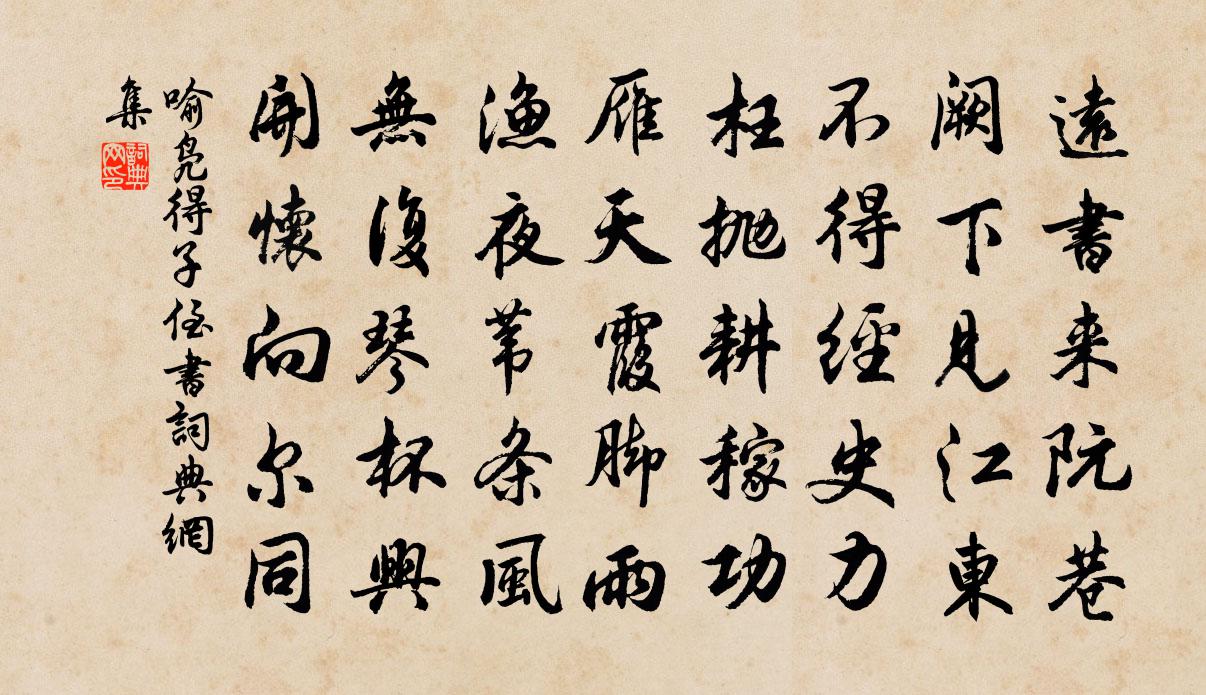 遠書来阮巷
闕下見江東
不得經史力
枉抛耕稼功
雁天霞脚雨
漁夜苇条風
無復琴杯興
開懷向尔同
喻凫得子侄書詞典網
集
詞典网印